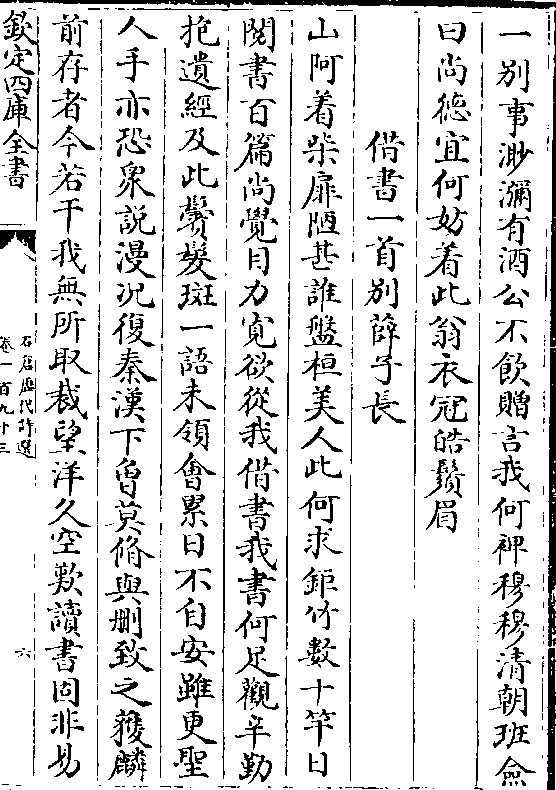 一别事渺瀰有酒公不飲贈言我何裨穆穆清朝班僉
曰尚德宜何妨着此翁衣冠皓鬚眉
借書一首别薛子長
山阿着柴扉陋甚誰盤桓美人此何求鉅竹數十竿日
閲書百篇尚覺目力寛欲從我借書我書何足觀辛勤
抱遺經及此鬢髮斑一語未領會累日不自安雖更聖
人手亦恐衆説漫况復秦漢下曾莫脩與删致之獲麟
前存者今若干我無所取裁望洋久空歎讀書固非易
欽定四庫全書
石倉歷代詩選
卷一百九十三
六